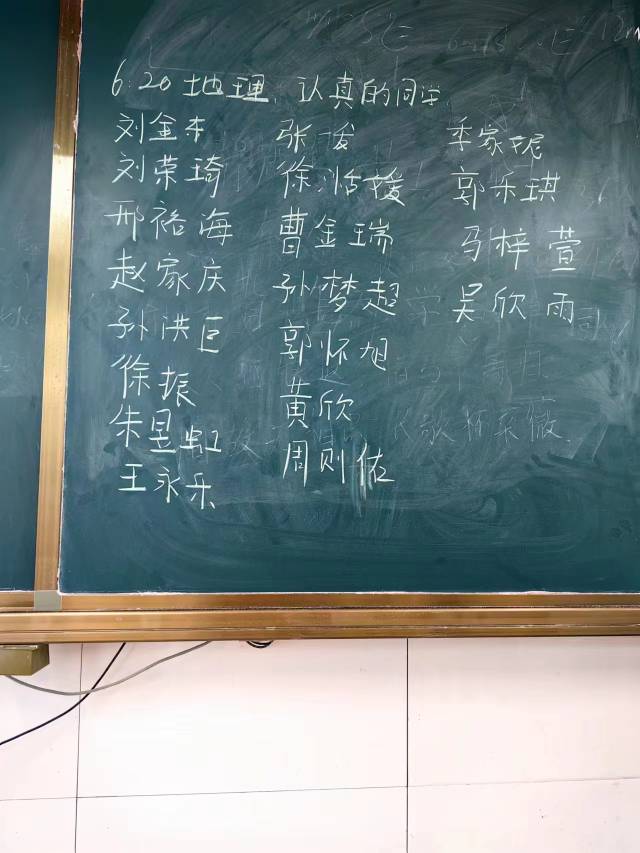 6.20 地理，认真的同学
刘金本 张浚 季家琨
刘荣琦 徐湉媛 郭乐琪
邢裕海 曹金瑞 马梓萱
赵家庆 孙梦超 吴欣雨
孙洪巨 郭怀旭
徐振 黄欣
朱昱虹 周则佑
王永乐